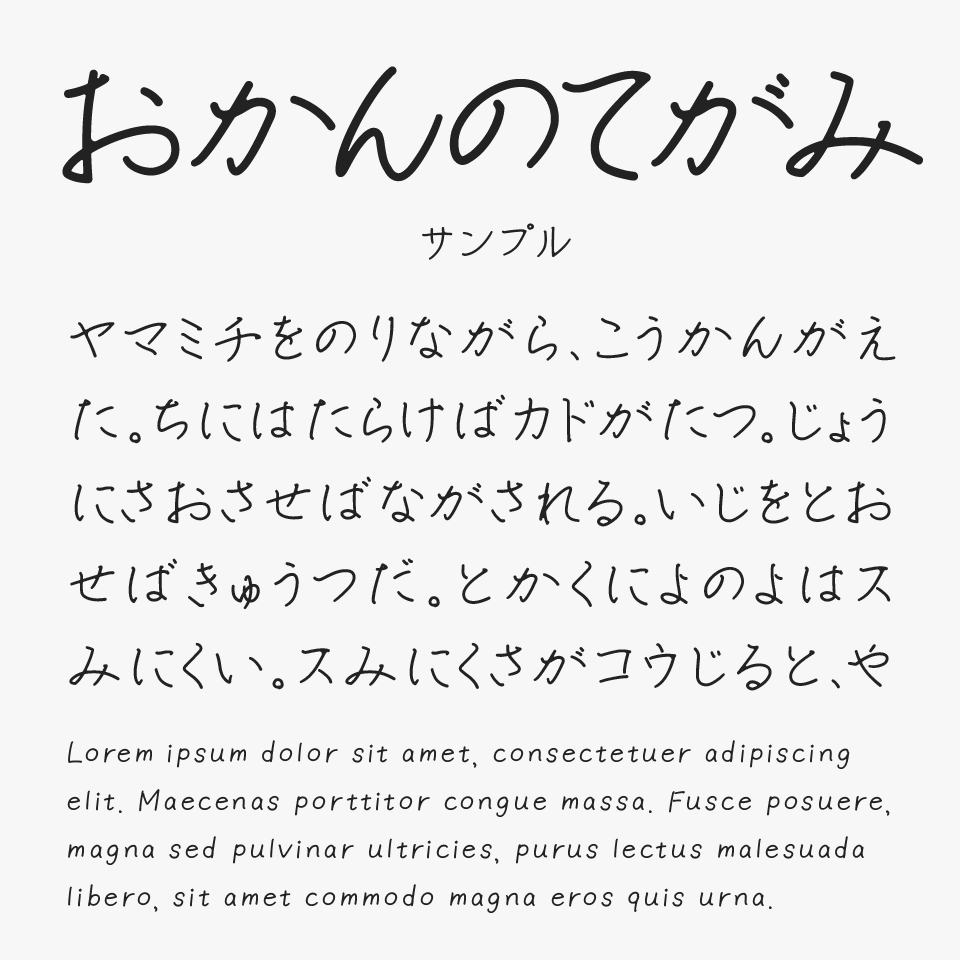 おかんのてがみ
サンプル
ヤマミチをのりながら、こうかんがえ
た。ちにはたらけばカドがたつ。じょう
にさおさせばながされる。いじをとお
せばきゅうつだ。とかくによのよはス
みにくい。スみにくさがコウじると、や
Lorem ipsum dolor sit amet, consectetuer adipiscing
elit. Maecenas porttitor congue massa. Fusce posuere,
magna sed pulvinar ultricies, purus lectus malesuada
libero, sit amet commodo magna eros quis urna.